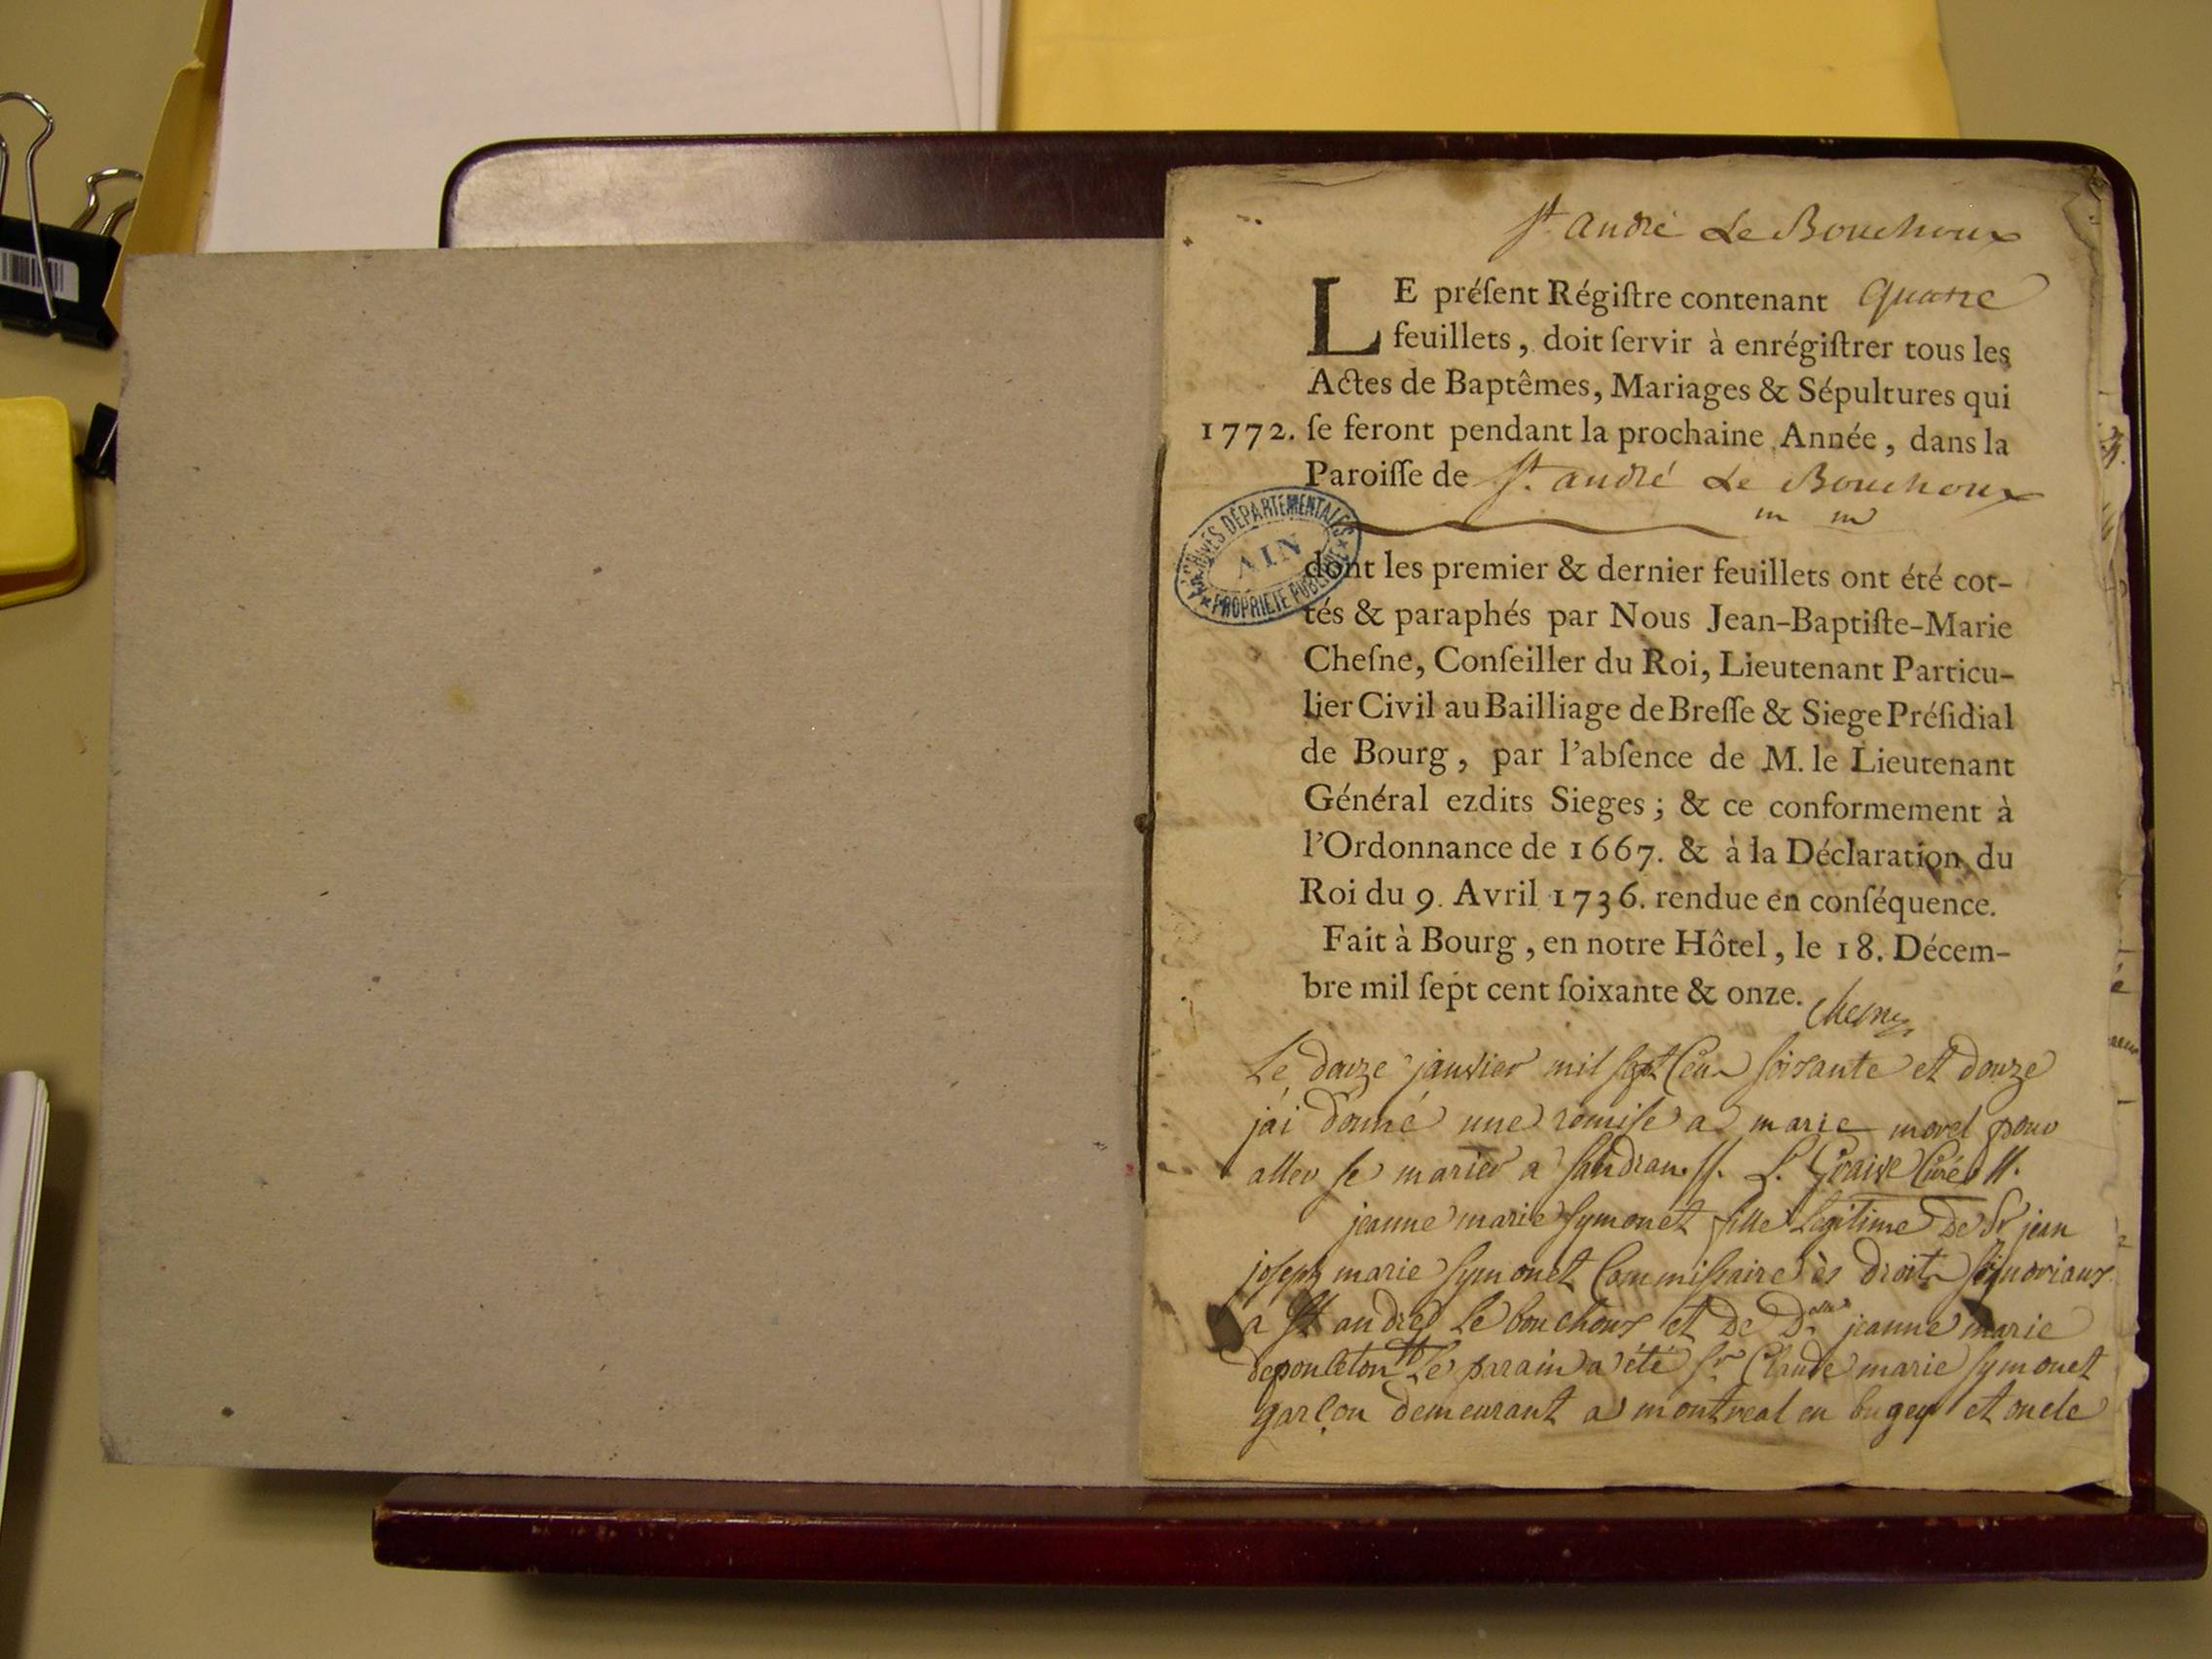 St. andré Le Bouchoux
LE préſent Régiſtre contenant quatre
feuillets, doit ſervir à enrégiſtrer tous les
Actes de Baptêmes, Mariages & Sépultures qui
1772. ſe feront pendant la prochaine Année, dans la
Paroiſſe de St. andré Le Bouchoux
ARCHIVES DÉPARTEMENTALES
AIN
PROPRIÉTÉ PUBLIQUE
dont les premier & dernier feuillets ont été cot-
tés & paraphés par Nous Jean-Baptiſte-Marie
Cheſne, Conſeiller du Roi, Lieutenant Particu-
lier Civil au Bailliage de Breſſe & Siege Préſidial
de Bourg, par l'abſence de M. le Lieutenant
Général ezdits Sieges; & ce conformement à
l'Ordonnance de 1667. & à la Déclaration du
Roi du 9. Avril 1736. rendue en conſéquence.
Fait à Bourg, en notre Hôtel, le 18. Décem-
bre mil ſept cent ſoixante & onze. Chesne
Le douze janvier mil sept Cent soixante et douze
j'ai donné une remise a marie morel pour
aller se marier a Sandrans Curé
jeanne marie symonet fille legitime de Sr jean
joseph marie symonet Commissaire ès droits signoriaux
a St andré le bouchoux et de Dlle jeanne marie
deponcton Le parain a été Sr Claude marie symonet
garçon demeurant a montreal en bugey et oncle